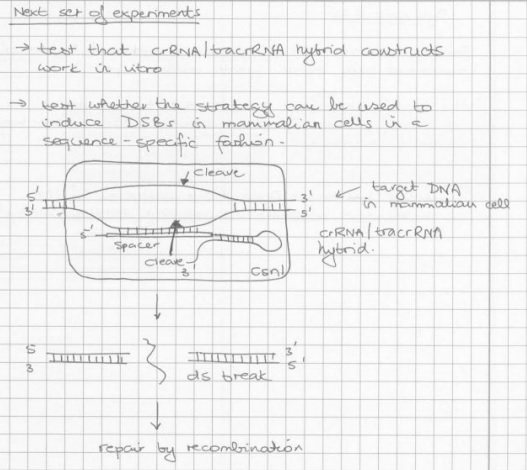 Next set of experiments
→ test that crRNA/tracrRNA hybrid constructs
work in vitro
→ test whether the strategy can be used to
induce DSBs in mammalian cells in a
sequence-specific fashion.
cleave
5' 3'
3' 5'
← target DNA
in mammalian cell
5'
spacer
crRNA/tracrRNA
hybrid.
cleave
3'
Csn1
5 3'
3 5'
ds break
repair by recombination